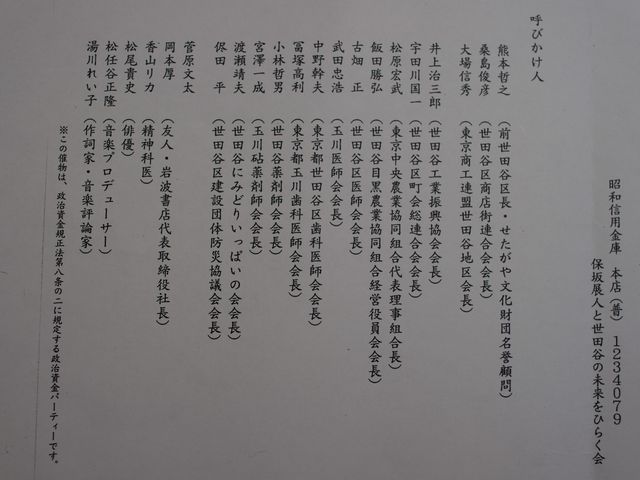 昭和信用金庫 本店(普)1234079
保坂展人と世田谷の未来をひらく会
呼びかけ人
熊本哲之 (前世田谷区長・せたがや文化財団名誉顧問)
桑島俊彦 (世田谷区商店街連合会会長)
大場信秀 (東京商工連盟世田谷地区会長)
井上治三郎 (世田谷工業振興協会会長)
宇田川国一 (世田谷区町会総連合会会長)
松原宏武 (東京中央農業協同組合代表理事組合長)
飯田勝弘 (世田谷目黒農業協同組合経営役員会会長)
古畑 正 (世田谷区医師会会長)
武田忠浩 (玉川医師会会長)
中野幹夫 (東京都世田谷区歯科医師会会長)
冨塚高利 (東京都玉川歯科医師会会長)
小林哲男 (世田谷薬剤師会会長)
宮澤一成 (玉川砧薬剤師会会長)
渡瀬靖夫 (世田谷にみどりいっぱいの会会長)
保田 平 (世田谷区建設団体防災協議会会長)
菅原文太
岡本厚 (友人・岩波書店代表取締役社長)
香山リカ (精神科医)
松尾貴史 (俳優)
松任谷正隆 (音楽プロデューサー)
湯川れい子 (作詞家・音楽評論家)
※この催物は、政治資金規正法第八条の二に規定する政治資金パーティーです。